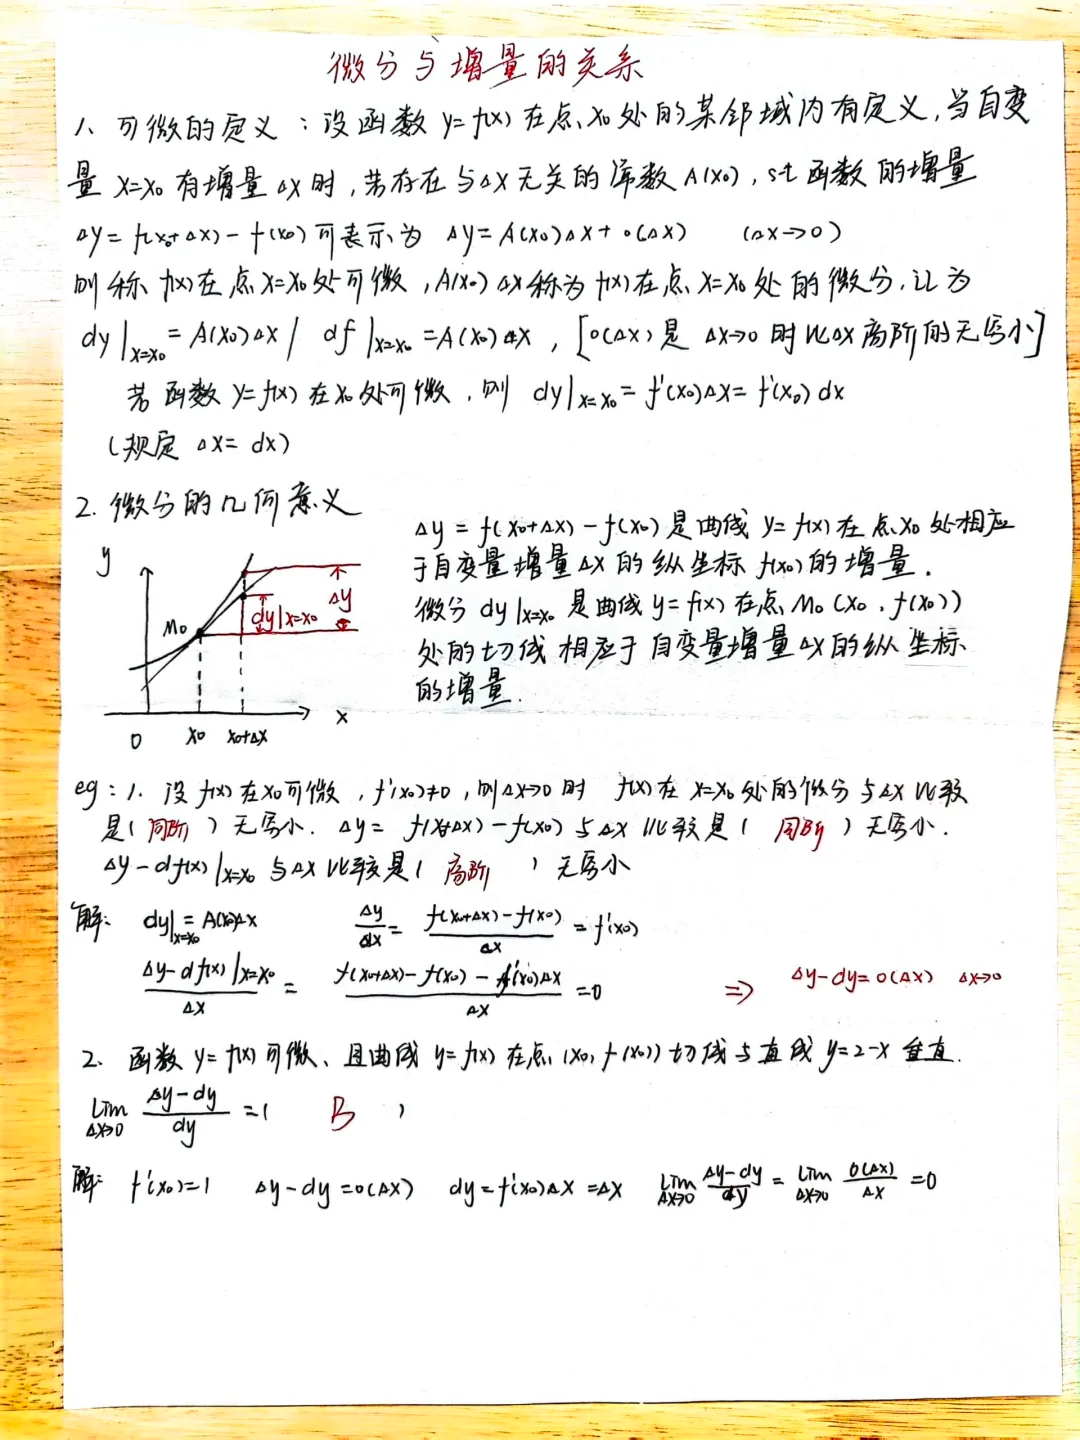 微分与增量的关系
1、可微的定义：设函数 y=f(x) 在点 x₀ 处的某邻域内有定义，当自变
量 x=x₀ 有增量 Δx 时，若存在与 Δx 无关的常数 A(x₀)，st 函数的增量
Δy=f(x₀+Δx)-f(x₀) 可表示为 Δy=A(x₀)Δx+o(Δx) (Δx→0)
则称 f(x) 在点 x=x₀ 处可微，A(x₀)Δx 称为 f(x) 在点 x=x₀ 处的微分，记为
dy|x=x₀ = A(x₀)Δx / df|x=x₀ = A(x₀)Δx，[o(Δx) 是 Δx→0 时比 Δx 高阶的无穷小]
若函数 y=f(x) 在 x₀ 处可微，则 dy|x=x₀ = f'(x₀)Δx = f'(x₀)dx
(规定 Δx=dx)
2. 微分的几何意义
y
M₀
dy|x=x₀
Δy
0 x₀ x₀+Δx x
Δy=f(x₀+Δx)-f(x₀) 是曲线 y=f(x) 在点 x₀ 处相应
于自变量增量 Δx 的纵坐标 f(x₀) 的增量．
微分 dy|x=x₀ 是曲线 y=f(x) 在点 M₀(x₀，f(x₀))
处的切线相应于自变量增量 Δx 的纵坐标
的增量．
eg：1. 设 f(x) 在 x₀ 可微，f'(x₀)≠0，则 Δx→0 时 f(x) 在 x=x₀ 处的微分与 Δx 比较
是（同阶）无穷小．Δy=f(x+Δx)-f(x₀) 与 Δx 比较是（同阶）无穷小．
Δy-df(x)|x=x₀ 与 Δx 比较是（高阶）无穷小
解：dy|x=x₀ = A(x₀)Δx Δy/Δx = (f(x₀+Δx)-f(x₀))/Δx = f'(x₀)
(Δy-df(x)|x=x₀)/Δx = (f(x₀+Δx)-f(x₀)-f'(x₀)Δx)/Δx = 0 ⇒ Δy-dy=o(Δx) Δx→0
2、函数 y=f(x) 可微、且曲线 y=f(x) 在点 (x₀, f(x₀)) 切线与直线 y=2-x 垂直．
lim Δx→0 (Δy-dy)/dy =( B )
解：f'(x₀)=1 Δy-dy=o(Δx) dy=f'(x₀)Δx=Δx lim Δx→0 (Δy-dy)/dy = lim Δx→0 o(Δx)/Δx =0